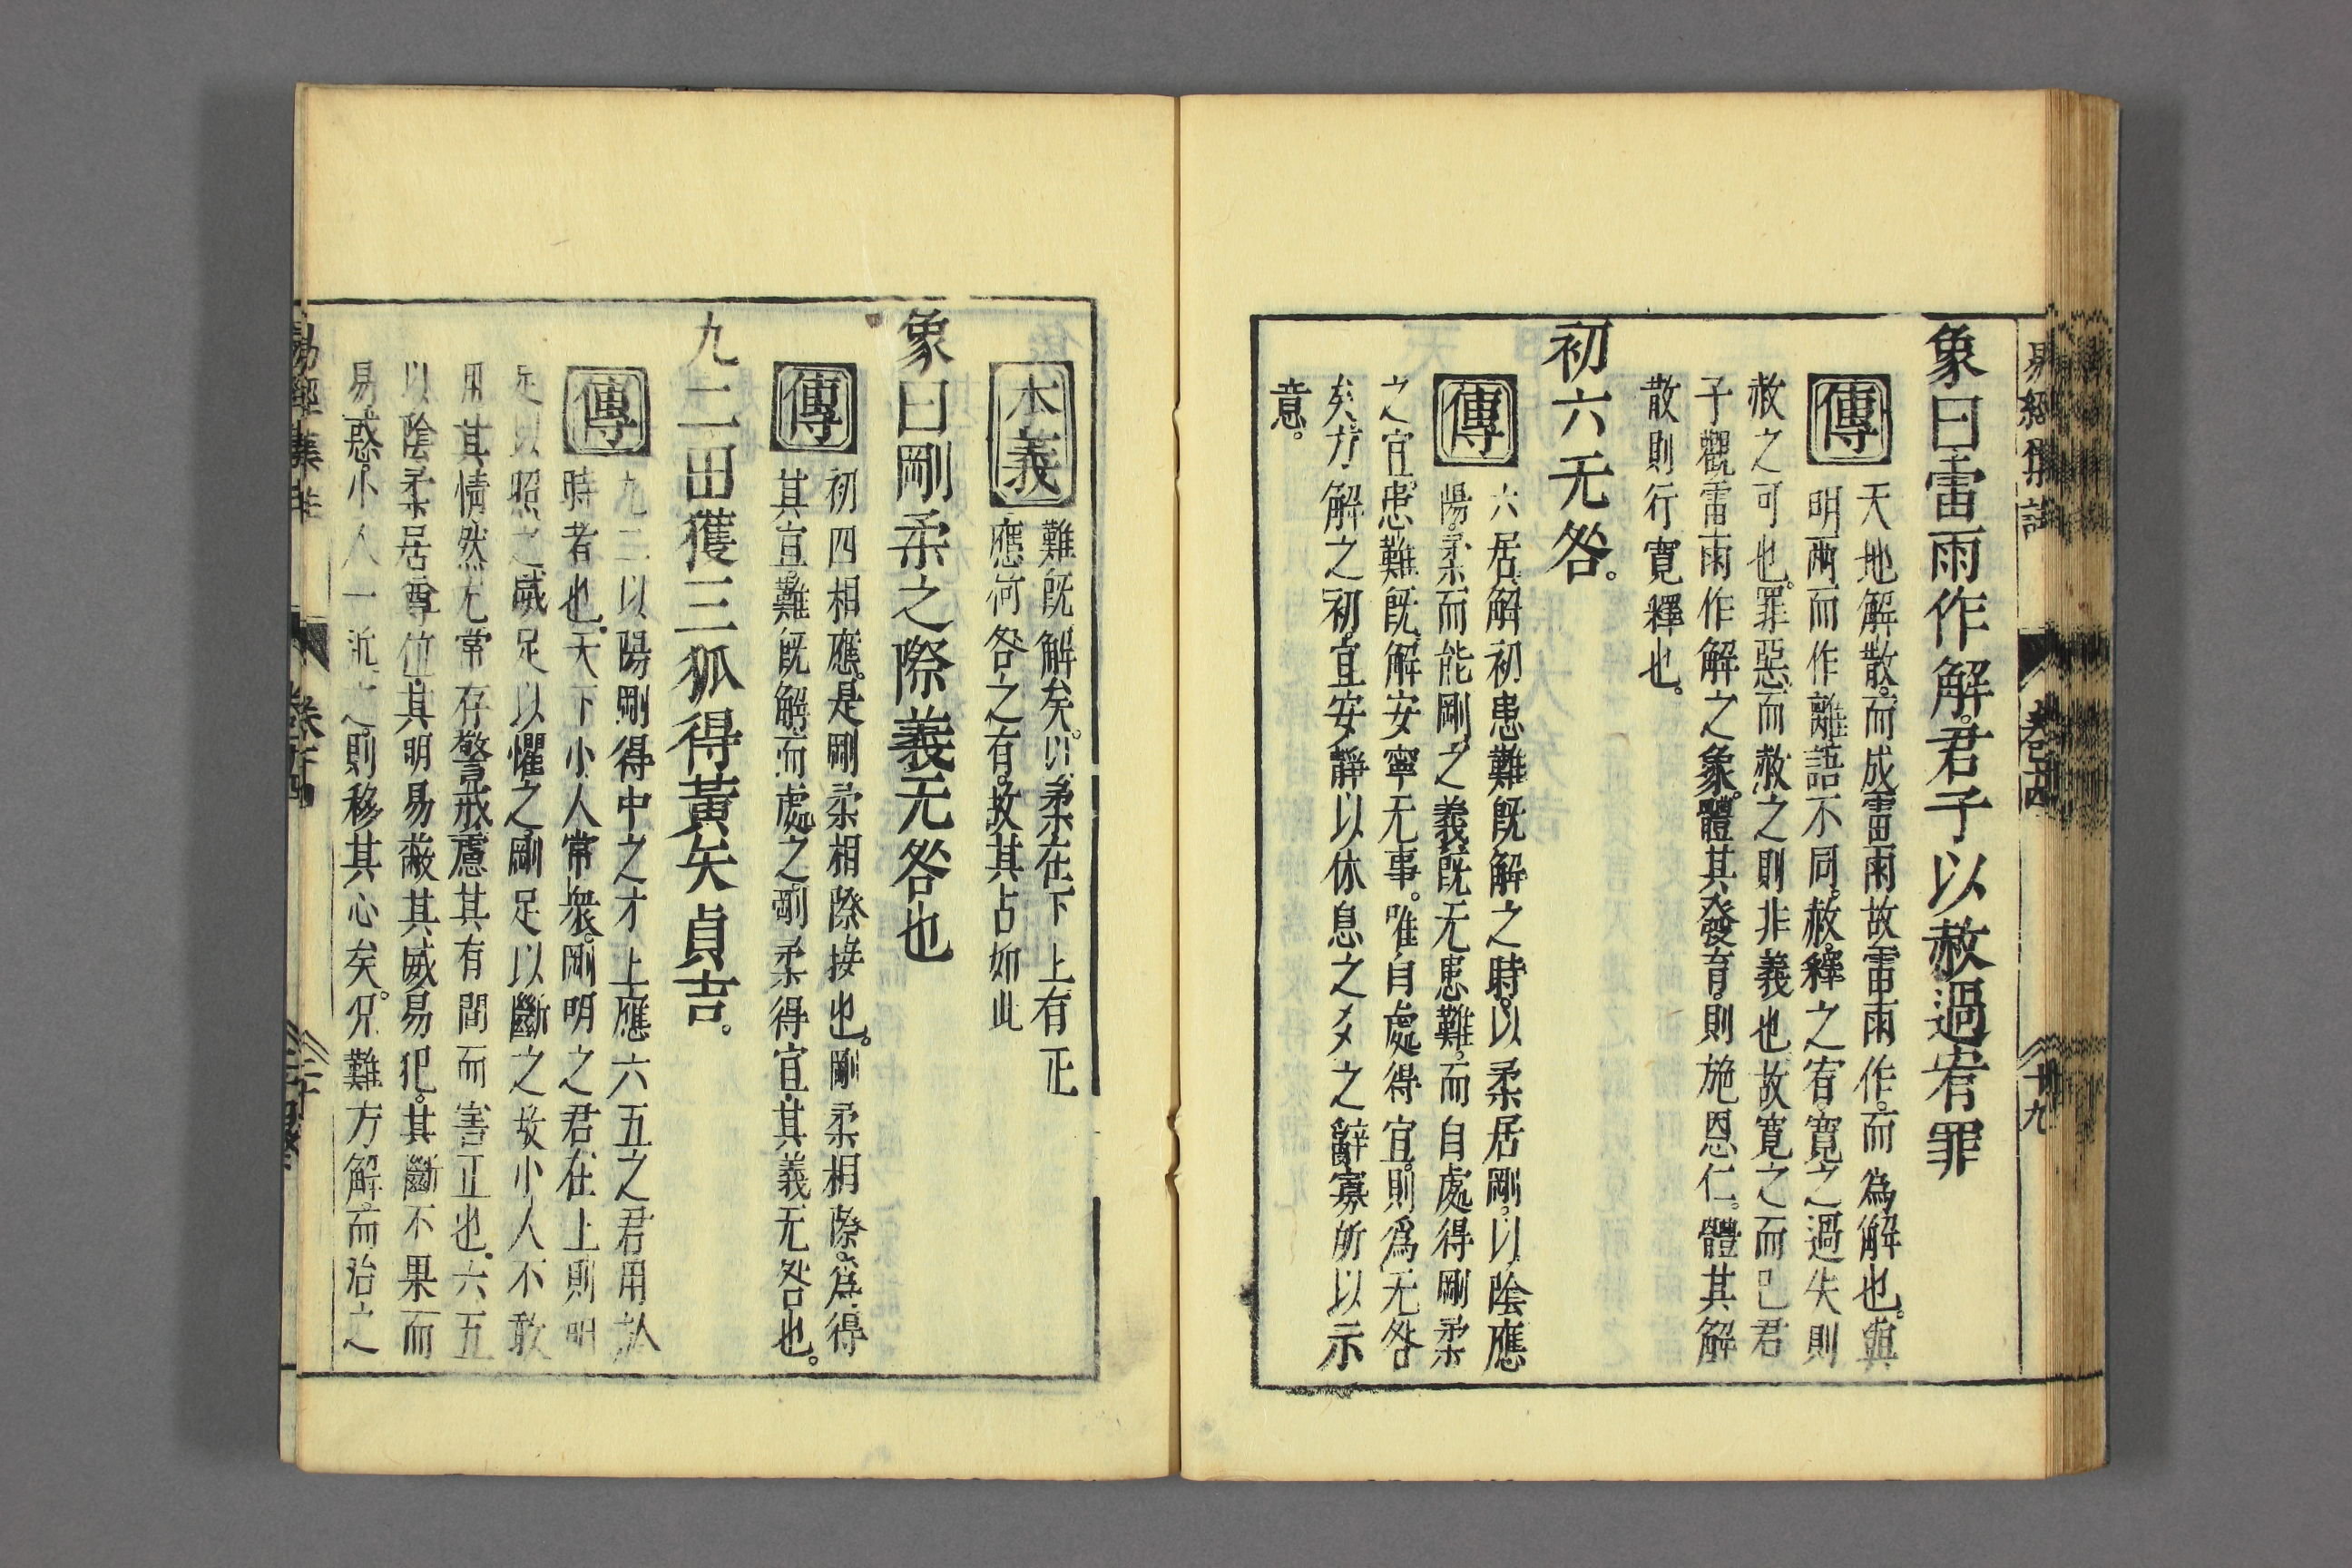 象曰雷雨作解君子以赦過宥罪
傳
天地解散而成雷雨故雷雨作而為解也與
明兩而作離語不同赦釋之宥寬之過失則
赦之可也罪惡而赦之則非義也故寬之而已君
子觀雷雨作解之象體其發育則施恩仁體其解
散則行寬釋也
初六无咎
傳
六居解初患難既解之時以柔居剛以陰應
陽柔而能剛之義既无患難而自處得剛柔
之宜患難既解安寧无事唯自處得宜則爲无咎
矣方解之初宜安靜以休息之爻之辭寡所以示
意
本義
難既解矣以柔在下上有正
應何咎之有故其占如此
象曰剛柔之際義无咎也
傳
初四相應是剛柔相際接也剛柔相際為得
其宜難既解而處之剛柔得宜其義无咎也
九二田獲三狐得黃矢貞吉
傳
九二以陽剛得中之才上應六五之君用於
時者也天下小人常衆剛明之君在上則明
足以照之威足以懼之剛足以斷之故小人不敢
用其情然尤常存警戒慮其有間而害正也六五
以陰柔居尊位其明易蔽其威易犯其斷不果而
易惑小人一近之則移其心矣況難方解而治之